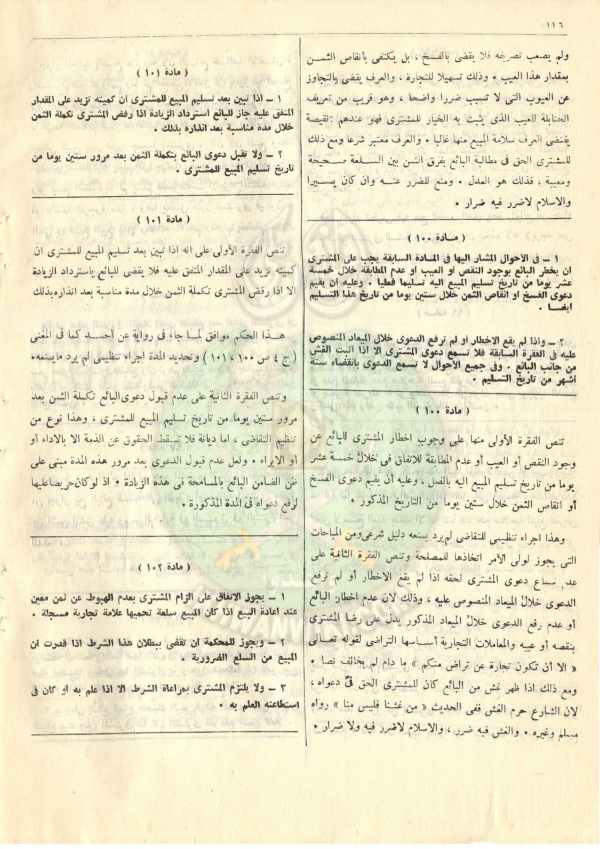 ١١٦
ولم يصعب تصريفه فلا يقضى بالفسخ ، بل يكتفى بأنقاص الثمن
بمقدار هذا العيب • وذلك تسهيلا للتجارة ، والعرف يقضى بالتجاوز
عن العيوب التى لا تسبب ضررا واضحا ، وهو قريب من تعريف
الحنابلة للعيب الذى يثبت به الخيار للمشترى فهو عندهم : نقيصة
يقتضى العرف سلامة المبيع منها غالبا • والعرف معتبر شرعا ومع ذلك
للمشترى الحق فى مطالبة البائع بفرق الثمن بين السلعة صحيحة
ومعيبة ، فذلك هو العدل • ومنع للضرر عنه وان كان يسيرا
والاسلام لاضرر فيه ضرار •
( مادة ١٠٠ )
١ – فى الأحوال المشار اليها فى المادة السابقة يجب على المشترى
ان يخطر البائع بوجود النقص أو العيب او عدم المطابقة خلال خمسة
عشر يوما من تاريخ تسليم المبيع اليه تسليما فعليا • وعليه أن يقيم
دعوى الفسخ او انقاص الثمن خلال ستين يوما من تاريخ هذا التسليم
ايضا •
٢ – واذا لم يقع الاخطار او لم ترفع الدعوى خلال الميعاد المنصوص
عليه فى الفقرة السابقة فلا تسمع دعوى المشترى الا اذا اثبت الغش
من جانب البائع • وفى جميع الأحوال لا تسمع الدعوى بانقضاء ستة
اشهر من تاريخ التسليم •
( مادة ١٠٠ )
تنص الفقرة الأولى منها على وجوب اخطار المشترى للبائع عن
وجود النقص أو العيب أو عدم المطابقة للاتفاق فى خلال خمسة عشر
يوما من تاريخ تسليم المبيع اليه بالفعل ، وعليه أن يقيم دعوى الفسخ
أو انقاص الثمن خلال ستين يوما من التاريخ المذكور •
وهذا اجراء تنظيمى للتقاضى لم يرد بمنعه دليل شرعى ومن المباحات
التى يجوز لولى الأمر اتخاذها للمصلحة وتنص الفقرة الثانية على
عدم سماع دعوى المشترى لحقه اذا لم يقع الاخطار أو لم ترفع
الدعوى خلال الميعاد المنصوص عليه ، وذلك لان عدم اخطار البائع
أو عدم رفع الدعوى خلال الميعاد المذكور يدل على رضا المشترى
بنقصه أو عيبه والمعاملات التجارية أساسها التراضى لقوله تعالى
« الا أن تكون تجارة عن تراض منكم » ما دام لم يخالف نصا •
ومع ذلك اذا ظهر غش من البائع كان للمشترى الحق فى دعواه ،
لان الشارع حرم الغش ففى الحديث « من غشنا فليس منا » رواه
مسلم وغيره • والغش فيه ضرر ، والاسلام لاضرر فيه ولا ضرار •
( مادة ١٠١ )
١ – اذا تبين بعد تسليم المبيع للمشترى ان كميته تزيد على المقدار
المتفق عليه جاز للبائع استرداد الزيادة اذا رفض المشترى تكملة الثمن
خلال مدة مناسبة بعد انذاره بذلك •
٢ – ولا تقبل دعوى البائع بتكملة الثمن بعد مرور ستين يوما من
تاريخ تسليم المبيع للمشترى •
( مادة ١٠١ )
تنص الفقرة الأولى على انه اذا تبين بعد تسليم المبيع للمشترى ان
كميته تزيد على المقدار المتفق عليه فلا يقضى للبائع باسترداد الزيادة
الا اذا رفض المشترى تكملة الثمن خلال مدة مناسبة بعد انذاره بذلك
هذا الحكم موافق لما جاء فى رواية عن أحمد كما فى المغنى
( ج ٤ ص ١٠٠ ، ١٠١ ) وتحديد المدة اجراء تنظيمى لم يرد مايمنعه •
وتنص الفقرة الثانية على عدم قبول دعوى البائع تكملة الثمن بعد
مرور ستين يوما من تاريخ تسليم المبيع للمشترى ، وهذا نوع من
تنظيم التقاضى ، اما ديانة فلا تسقط الحقوق عن الذمة الا بالاداء أو
أو الابراء • ولعل عدم قبول الدعوى بعد مرور هذه المدة مبنى على
ظن الضامن البائع بالمسامحة فى هذه الزيادة • اذ لو كان حريصا عليها
لرفع دعواه فى المدة المذكورة •
( مادة ١٠٢ )
١ – يجوز الاتفاق على الزام المشترى بعدم الهبوط عن ثمن معين
عند اعادة البيع اذا كان المبيع سلعة تحميها علامة تجارية مسجلة •
٢ – ويجوز للمحكمة ان تقضى ببطلان هذا الشرط اذا قدرت ان
المبيع من السلع الضرورية •
٣ – ولا يلتزم المشترى بمراعاة الشرط الا اذا علم به او كان فى
استطاعته العلم به •